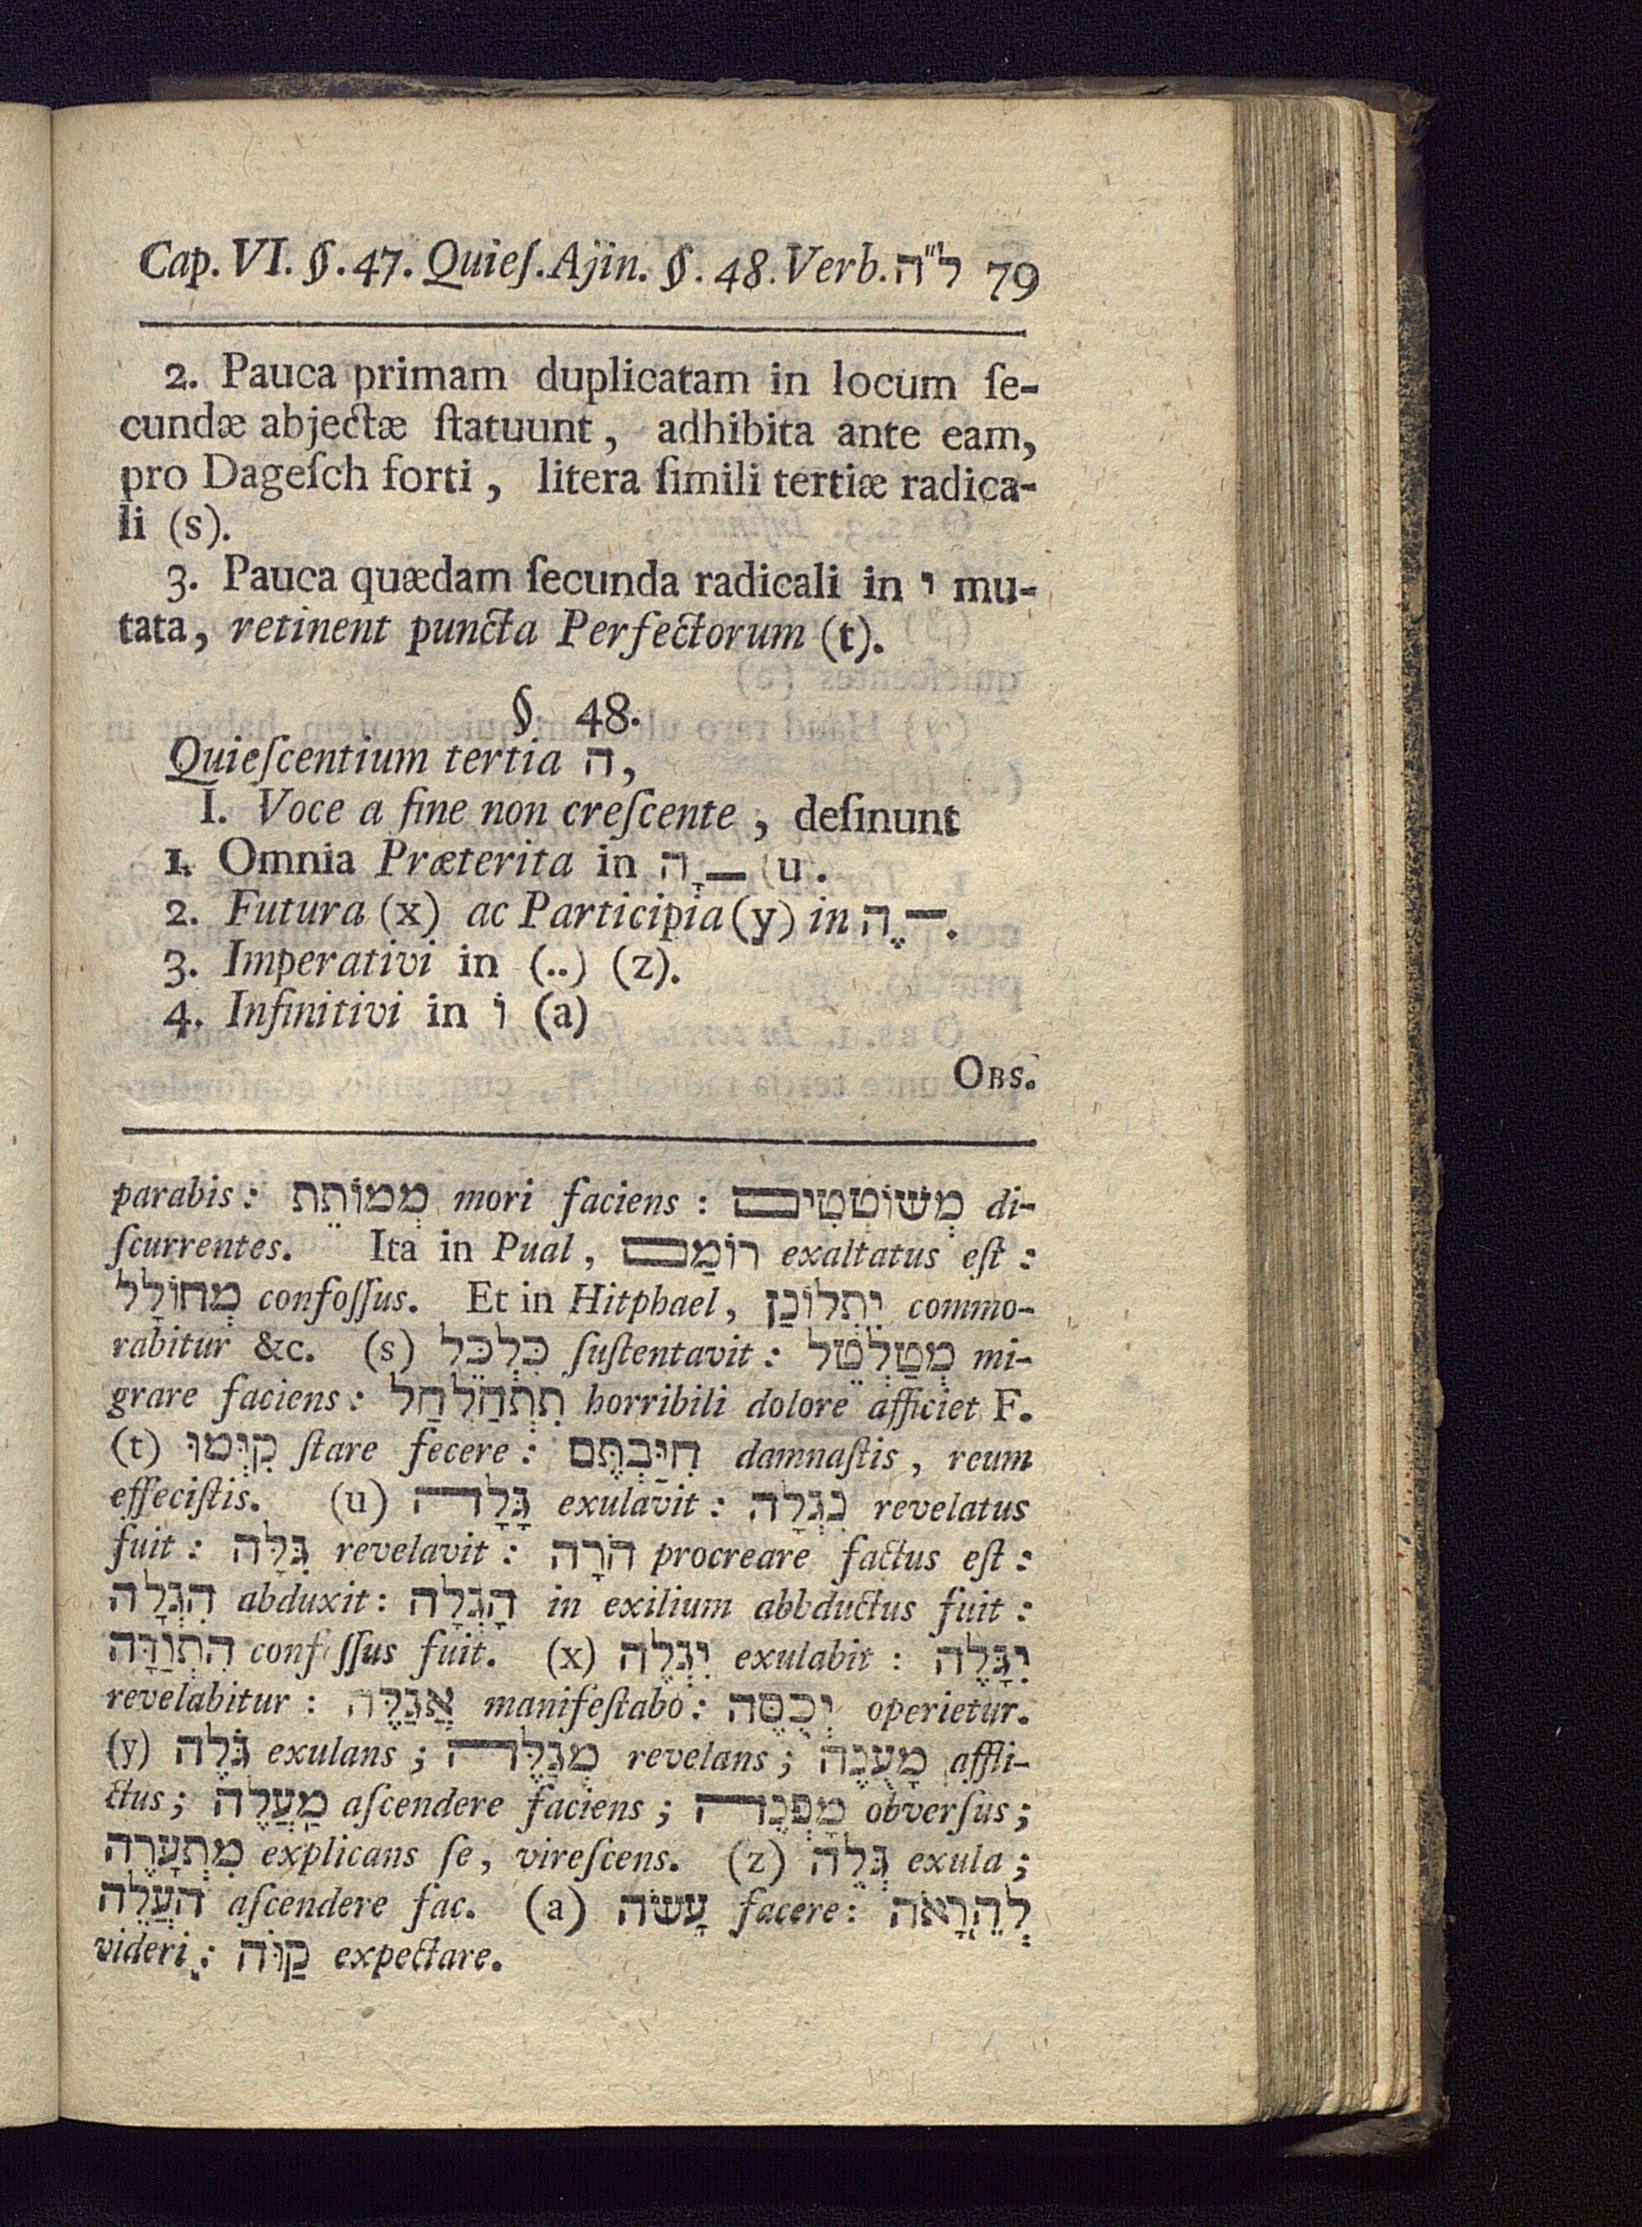 Cap. VI. §. 47. Quieſ. Ajin. §. 48. Verb. ל״ה 79
2. Pauca primam duplicatam in locum ſe-
cundæ abjectæ ſtatuunt, adhibita ante eam,
pro Dageſch forti, litera ſimili tertiæ radica-
li (s).
3. Pauca quædam ſecunda radicali in י mu-
tata, retinent puncta Perfectorum (t).
§ 48.
Quieſcentium tertia ה,
I. Voce a fine non creſcente, deſinunt
1. Omnia Præterita in ־ָה (u).
2. Futura (x) ac Participia (y) in ־ֶה.
3. Imperativi in (..) (z).
4. Infinitivi in וֹ (a)
OBS.
parabis: מְמוֹתֵת mori faciens: מְשׁוֹטְטִים di-
ſcurrentes. Ita in Pual, רוֹמַם exaltatus eſt:
מְחוֹלָל confoſſus. Et in Hitphael, יִתְלוֹנָן commo-
rabitur &c. (s) כִּלְכֵּל ſuſtentavit: מְטַלְטֵל mi-
grare faciens: תִתְחַלְחַל horribili dolore afficiet F.
(t) קִיְּמוּ ſtare fecere: חִיַּבְתֶּם damnaſtis, reum
effeciſtis. (u) גָּלָה exulavit: נִגְלָה revelatus
fuit: גִּלָּה revelavit: הֹרָה procreare factus eſt:
הִגְלָה abduxit: הָגְלָה in exilium abbductus fuit:
הִתְוַדָּה conf ſſus fuit. (x) יִגְלֶה exulabit: יִגָּלֶה
revelabitur: אֲגַלֶּה manifeſtabo: יְכֻסֶּה operietur.
(y) גֹּלֶה exulans; מְגַלֶּה revelans; מְעֻנֶּה affli-
ctus; מַעֲלֶה aſcendere faciens; מָפְנֶה obverſus;
מִתְעָרֶה explicans ſe, vireſcens. (z) גְּלֵה exula;
הַעֲלֵה aſcendere fac. (a) עָשֹׂה facere: לְהֵרָאֹה
videri: קַוֹּה expectare.